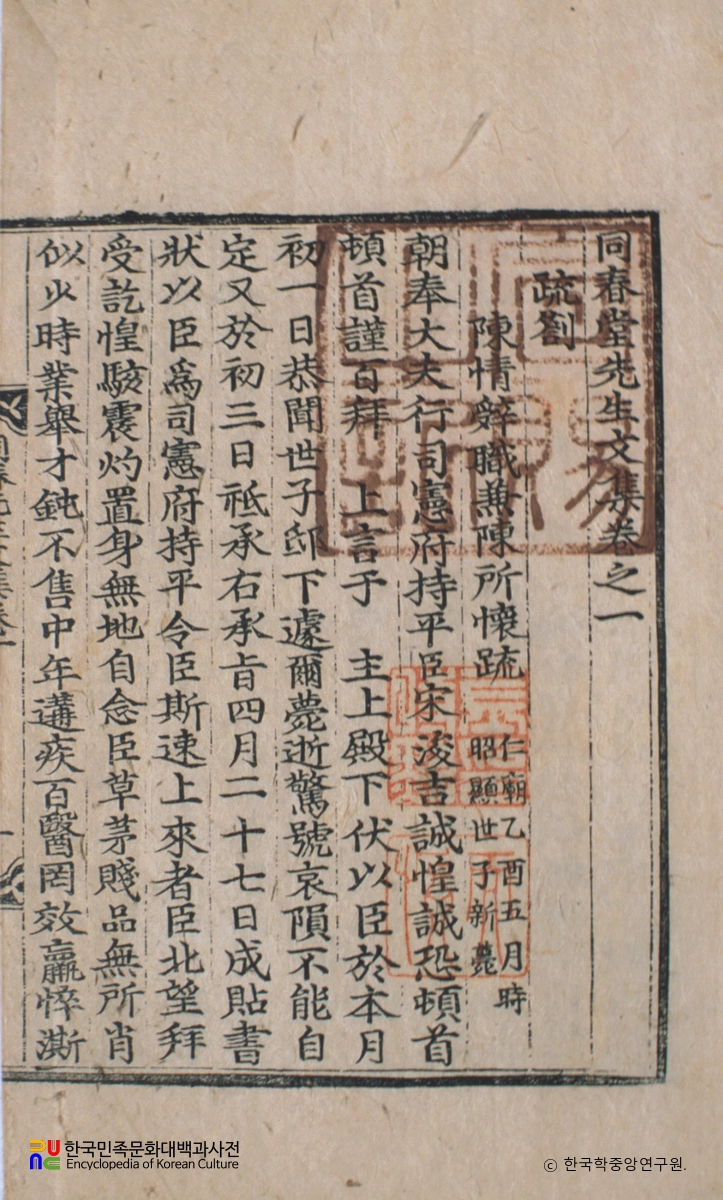 同春堂先生文集卷之一
疏劄
陳情辭職兼陳所懷疏 仁廟乙酉五月時
昭顯世子新薨
朝奉大夫行司憲府持平臣宋浚吉誠惶誠恐頓首
頓首謹百拜 上言于 主上殿下伏以臣於本月
初一日恭聞世子邸下遽爾薨逝驚號哀隕不能自
定又於初三日祗承右承旨四月二十七日成貼書
狀以臣爲司憲府持平令臣斯速上來者臣北望拜
受訖惶駭震灼置身無地自念臣草茅賤品無所肖
似少時業舉才鈍不售中年遘疾百醫罔效羸悴澌
한국민족문화대백과사전
Encyclopedia of Korean Culture
ⓒ 한국학중앙연구원.